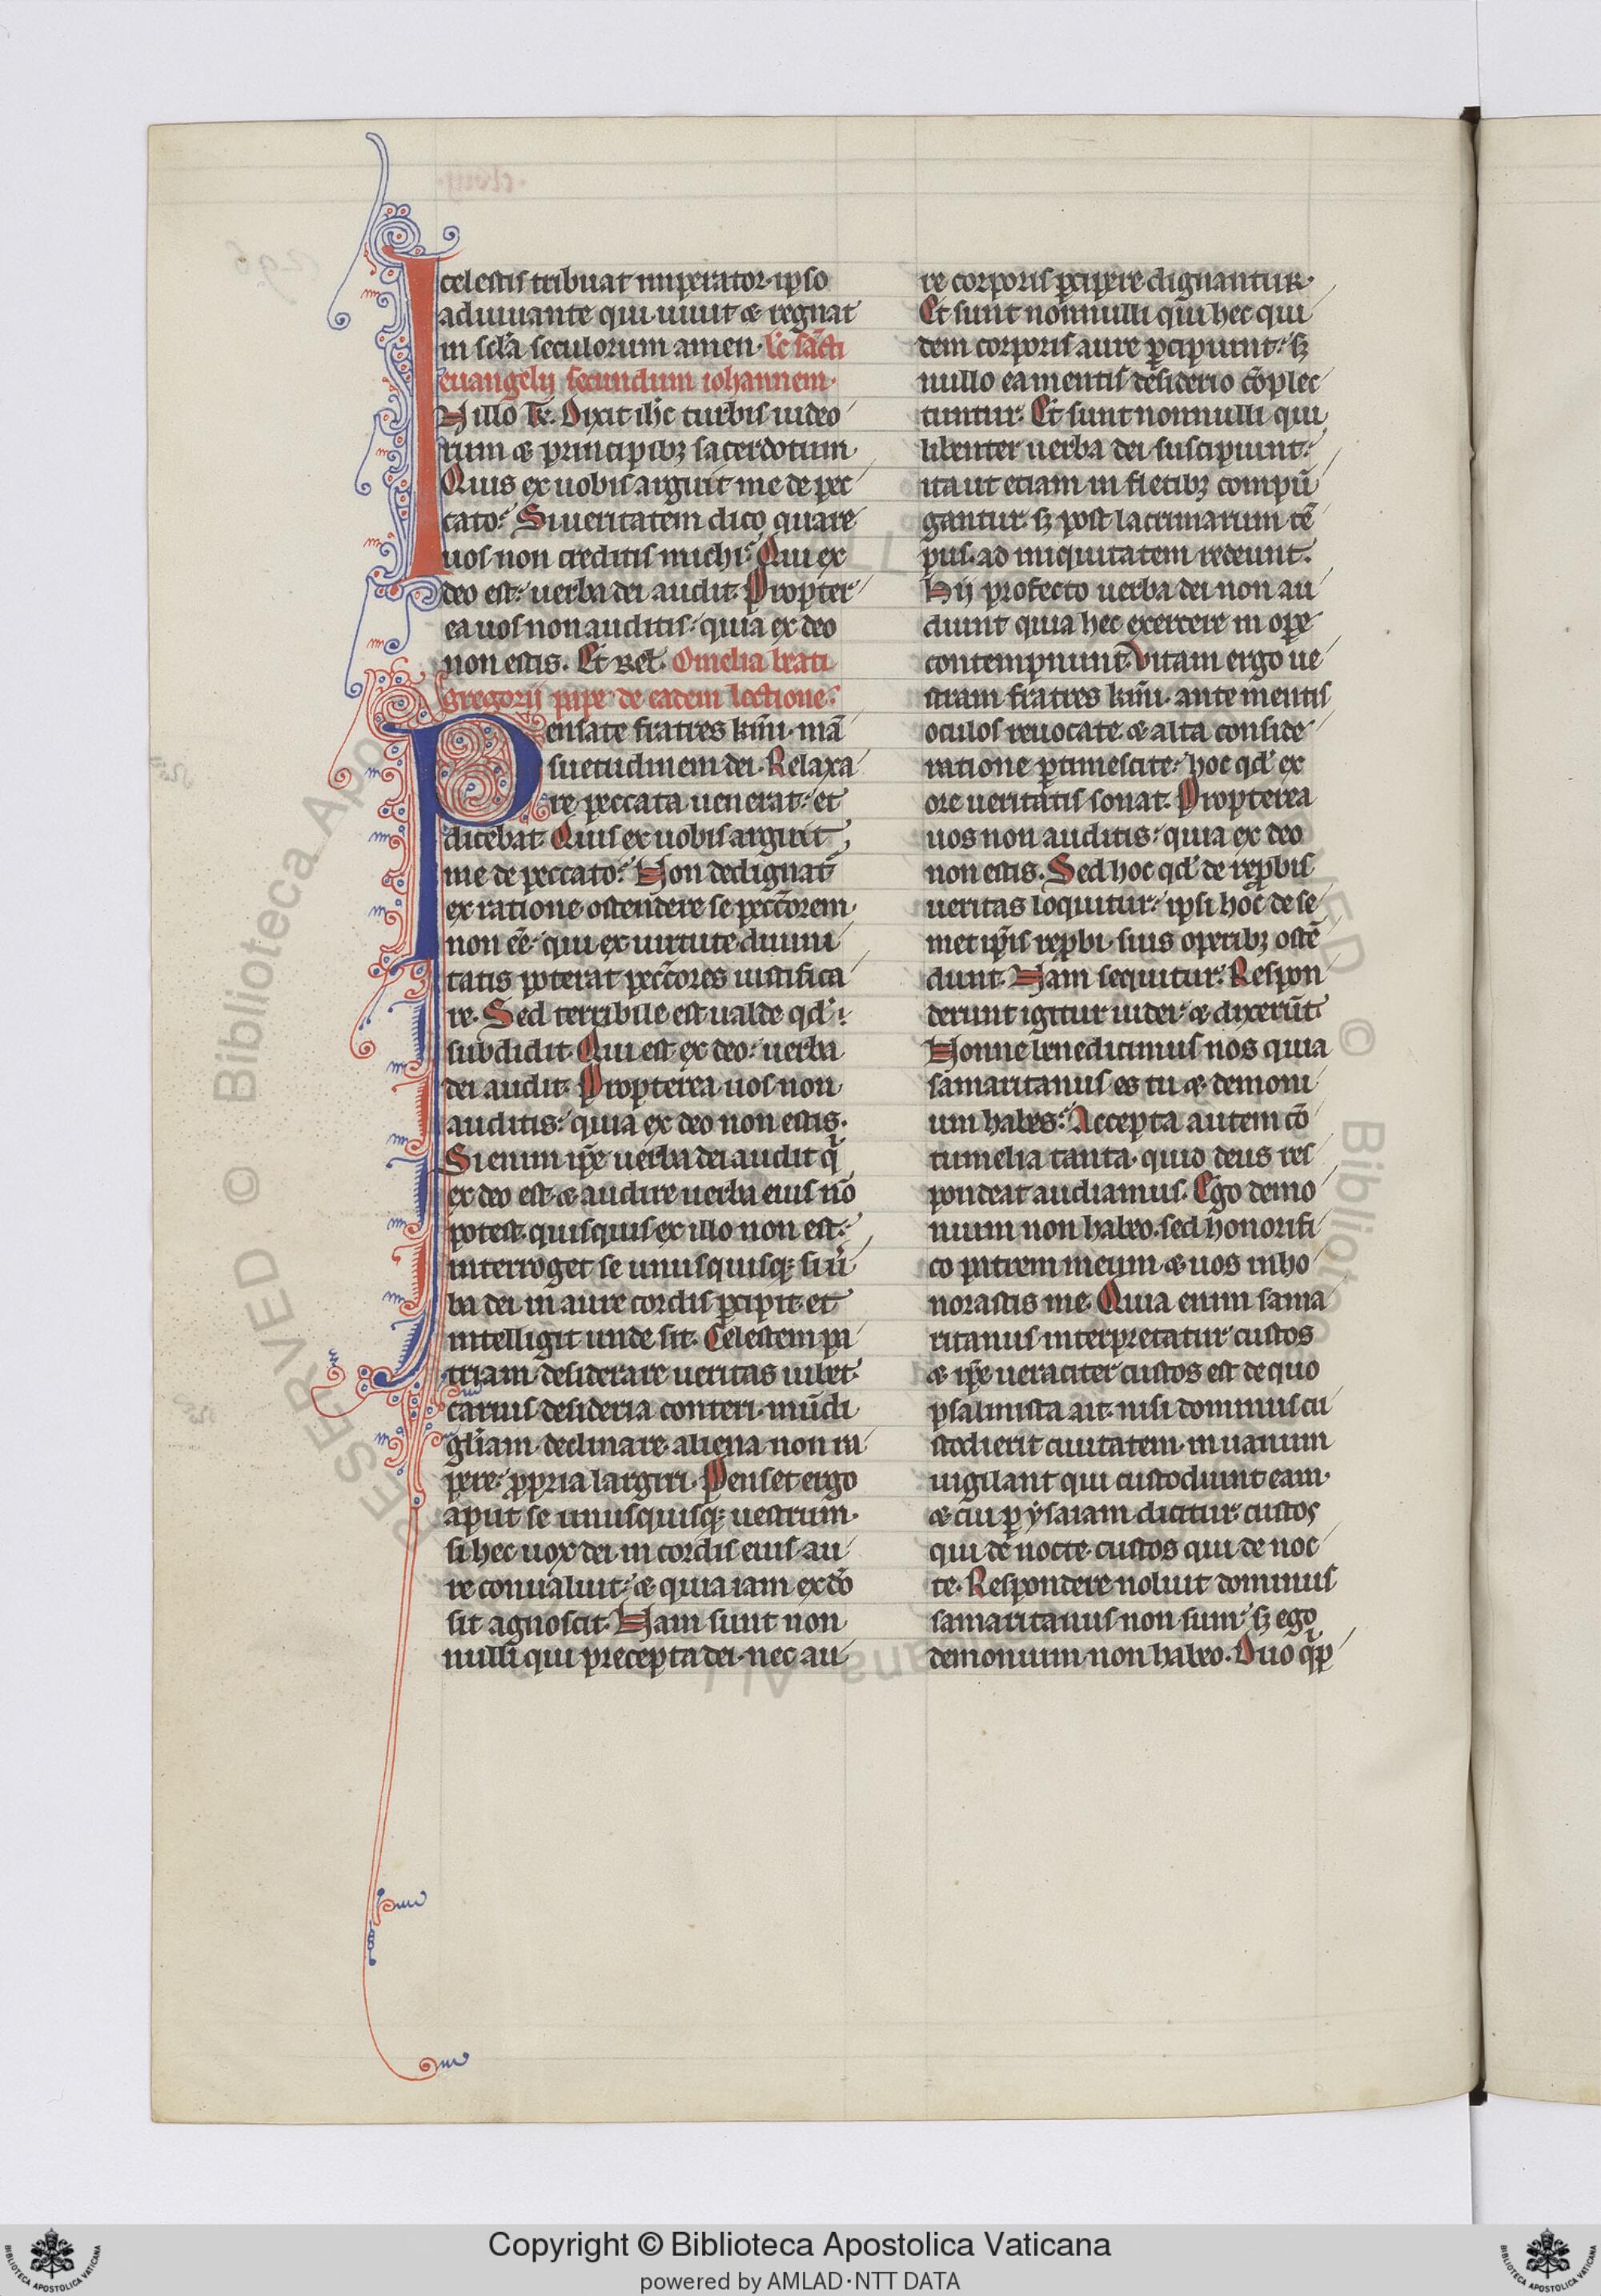 celestis tribuat imperator· ipso
adiuuante qui uiuit & regnat
in scl̄a seculorum amen· Lc̄ sāc̄ti
euangelij secundum iohannem·
IN illo t̄e. Dixit ih̄c turbis iudeo
rum & principibꝫ sacerdotum·
Quis ex uobis arguit me de pec
cato? Si ueritatem dico quare
uos non creditis michi? Qui ex
deo est: uerba dei audit. Propter
ea uos non auditis· quia ex deo
non estis. Et rel̄. Omelia beati
gregorij pape de eadem lectione:
Pensate fratres kr̄mi· mā
suetudinem dei. Relaxa
re peccata uenerat: et
dicebat. Quis ex uobis arguit
me de peccato? Non dedignat᷑
ex ratione ostendere se pecc̄orem·
non ēē· qui ex uirtute diuini
tatis poterat pecc̄ores iustifica
re. Sed terribile est ualde qd̄
subdidit. Qui est ex deo: uerba
dei audit. Propterea uos non
auditis: quia ex deo non estis.
Si enim ip̄e uerba dei audit q̄
ex deo est· & audire uerba eius nō
potest· quisquis ex illo non est:
interroget se unusquisqꝫ si ū
ba dei in aure cordis ꝑcipit· et
intelligit unde sit. Celestem pa
triam desiderare ueritas iubet·
carnis desideria conteri· mūdi
gl̄iam declinare· aliena non ra
pere: ꝓpria largiri. Penset ergo
aput se unusquisqꝫ uestrum·
si hec uox dei in cordis eius au
re conualuit: & quia iam ex dō
sit agnoscit. Nam sunt non
nulli qui precepta dei· nec au
re corporis ꝑcipere dignantur·
Et sunt nonnulli qui hec qui
dem corporis aure ꝑcipiunt: sꝫ
nullo ea mentis desiderio cōplec
tuntur. Et sunt nonnulli qui
libenter uerba dei suscipiunt:
ita ut etiam in fletibꝫ compū
gantur· sꝫ post lacrimarum tē
pus· ad iniquitatem redeunt.
Hij profecto uerba dei non au
diunt quia hec exercere in oꝑe
contempnunt. Vitam ergo ue
stram fratres kr̄mi· ante mentis
oculos reuocate & alta conside
ratione ꝑtimescite: hoc qd̄ ex
ore ueritatis sonat. Propterea
uos non auditis: quia ex deo
non estis. Sed hoc qd̄ de reꝓbis
ueritas loquitur: ipsi hoc de se
met ip̄is reꝓbi· suis operibꝫ ostē
dunt. Nam sequitur. Respon
derunt igitur iudei: & dixerūt
Nonne benedicimus nos quia
samaritanus es tu & demoni
um habes? Accepta autem cō
tumelia tanta· quid deus res
pondeat audiamus. Ego demo
nium non habeo· sed honorifi
co patrem meum & uos inho
norastis me. Quia enim sama
ritanus interpretatur custos
& ip̄e ueraciter custos est de quo
psalmista ait· nisi dominus cu
stodierit ciuitatem· in uanum
uigilant qui custodiunt eam·
& cui ꝑ ysaiam dicitur custos
qui de nocte· custos qui de noc
te. Respondere noluit dominus
samaritanus non sum: sꝫ ego
demonium non habeo. Duo q̄ꝑ
Copyright © Biblioteca Apostolica Vaticana
powered by AMLAD·NTT DATA